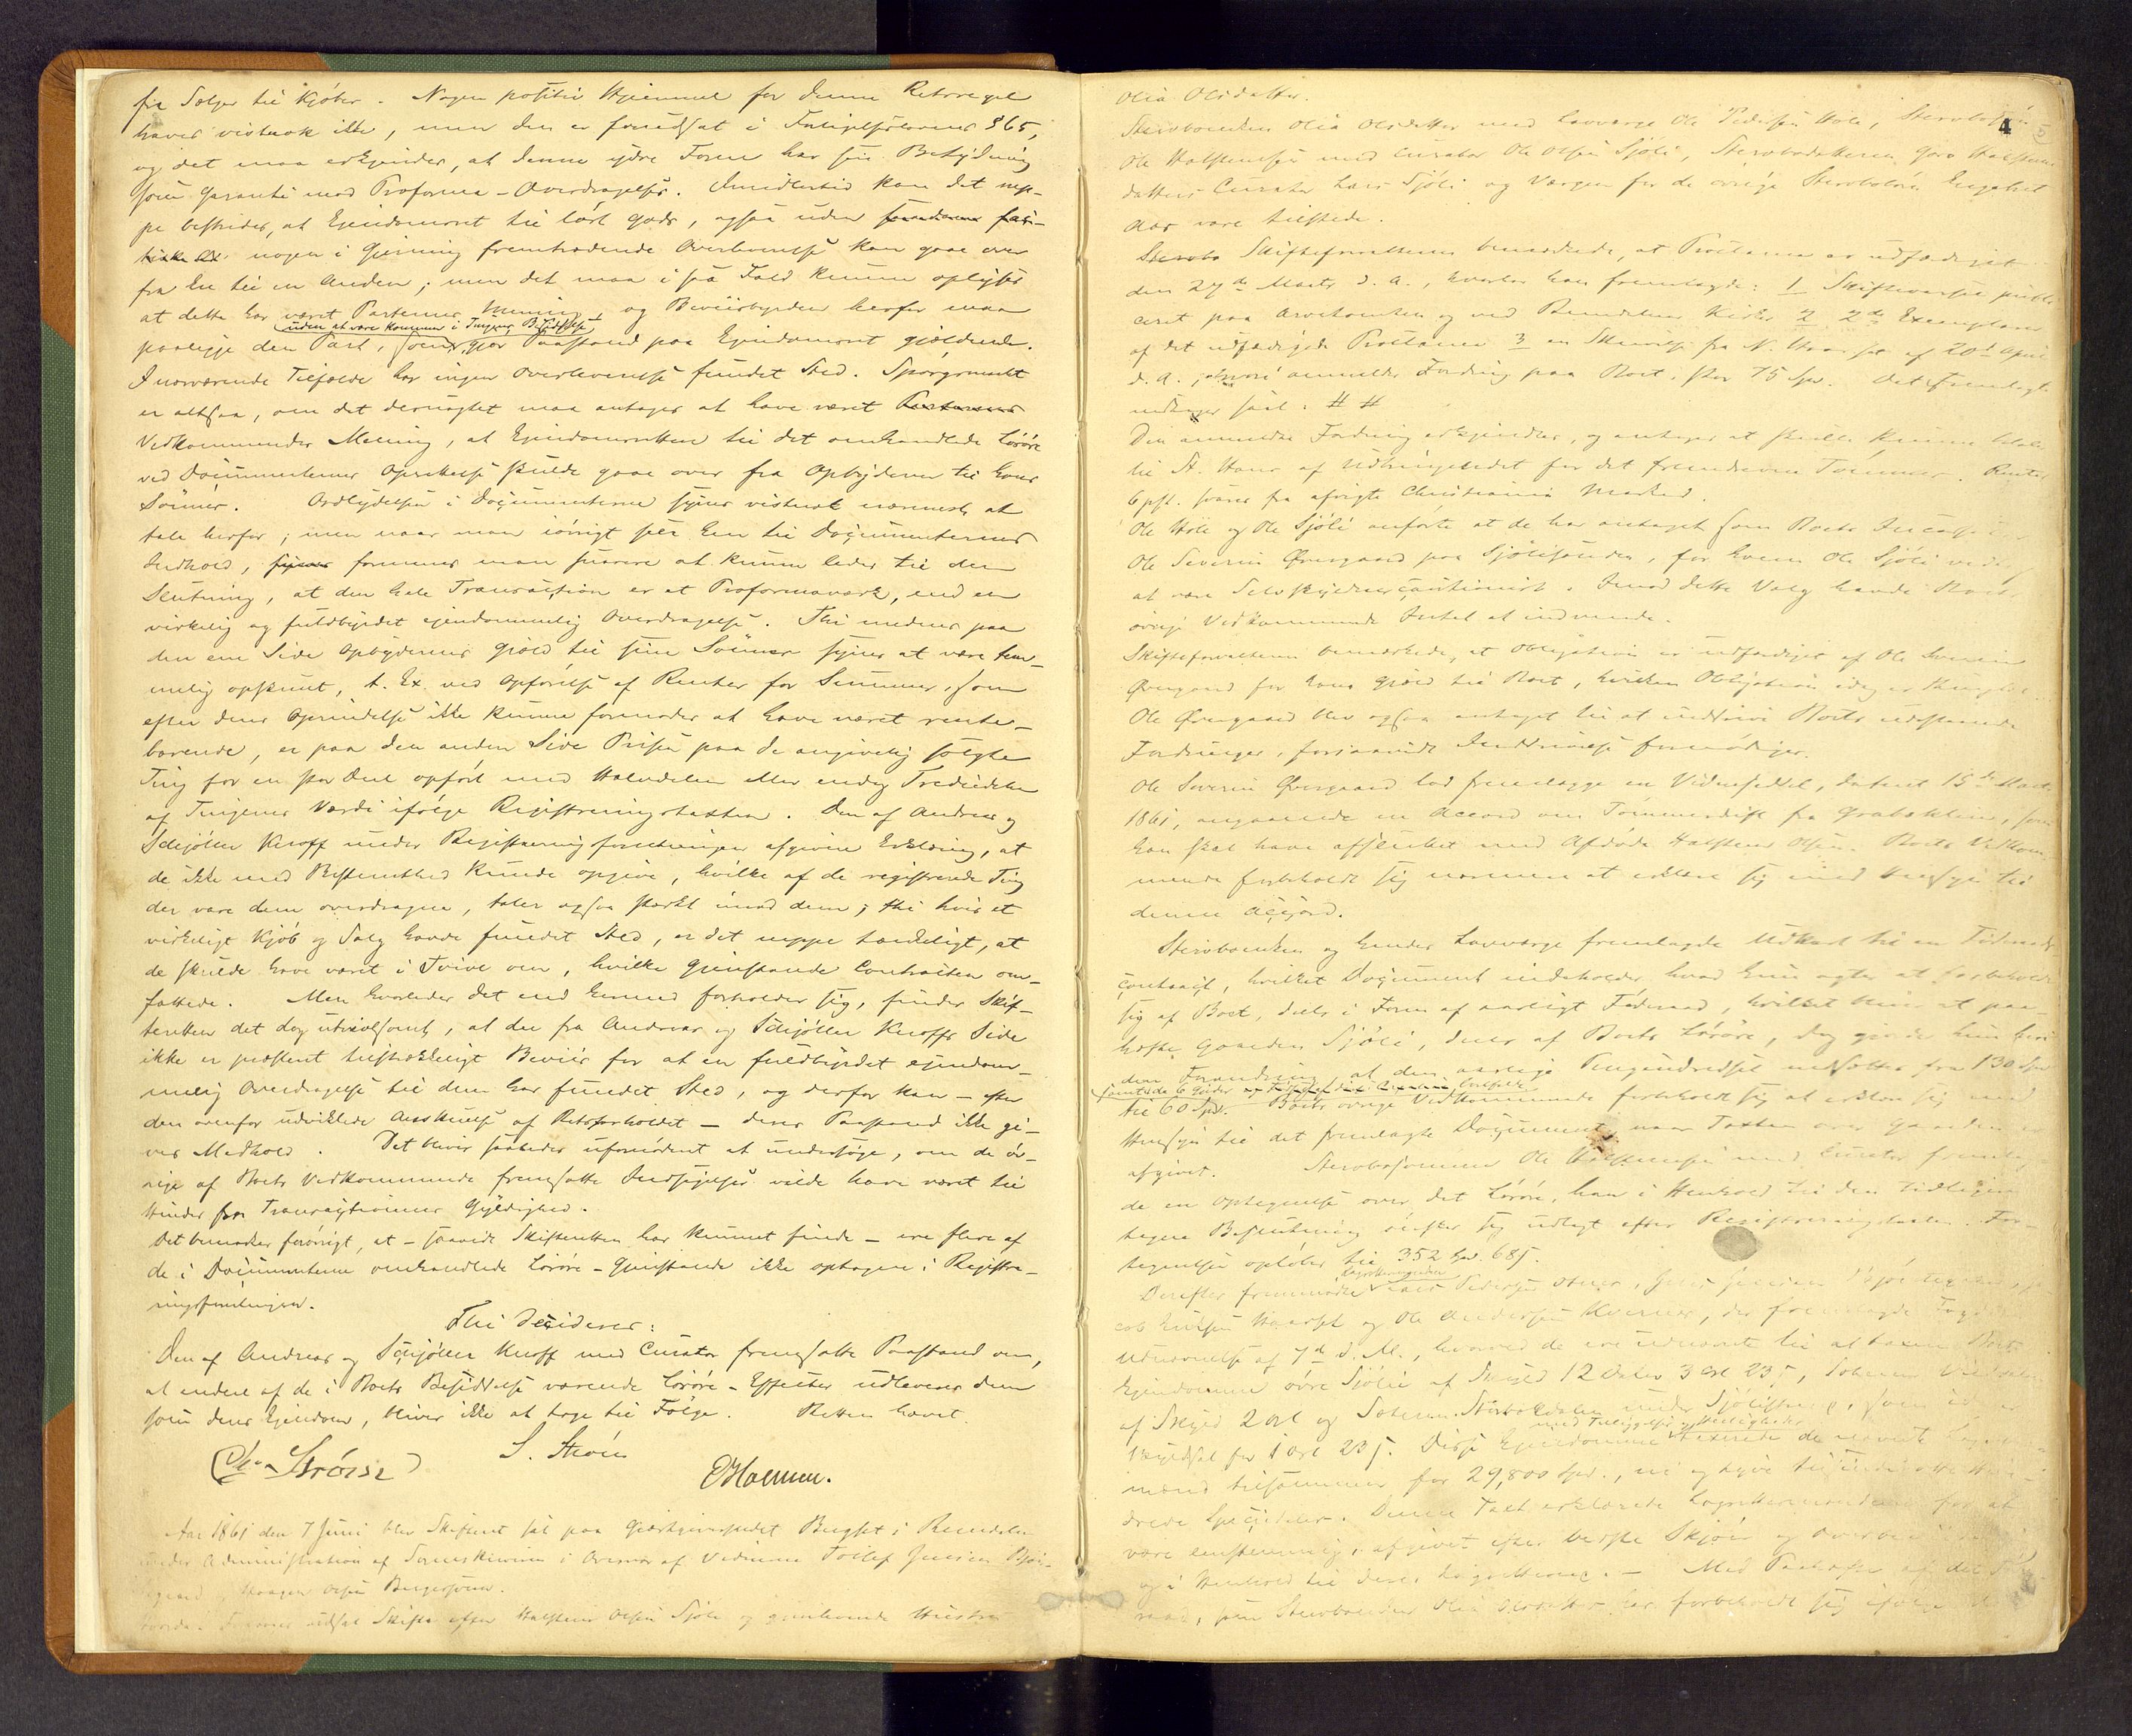 fra Sælger til Kjøber. Nogen positiv Hjemmel for denne Retsregel
haves vistnok ikke, men den er forudsat i Fallitlovens § 65,
og det maa erkjendes, at denne ydre Form har sin Betydning
som Garanti mod Proforma-Overdragelser. Imidlertid kan det nep-
pe bestrides, at Ejendomsret til löst Gods, ogsaa uden
nogen i Gjerning fremtrædende Overleverelse kan gaae over
fra En til en Anden; men det maa i saa Fald kunne oplyses
at dette har været Parternes Mening, og Beviisbyrden herfor maa
uden at være kommen i Tingenes Besiddelse
paaligge den Part, som gjør Paastand paa Ejendomsret gjældende.
I nærværende Tilfælde har ingen Overleverelse fundet Sted. Spørgsmaalet
er altsaa, om det desuagtet maa antages at have været
Vedkommendes Mening, at Ejendomsretten til det omhandlede Lösöre
ved Documenternes Oprettelse skulde gaae over fra Opbyderen til hans
Sönner. Ordlydelsen i Documenterne synes vistnok nærmest at
tale herfor; men naar man iövrigt seer hen til Documenternes
Indhold, formenes man snarere at kunne ledes til den
Slutning, at den hele Transaction er et Proformaværk, end en
virkelig og fuldbyrdet ejendommelig Overdragelse. Thi medens paa
den ene Side Opbyderens Gjæld til sine Sönner synes at være tem-
melig opskruet, t. Ex. ved Opförelse af Renter for Summer, som
efter deres Oprindelse ikke kunne formodes at have været rente-
bærende, er paa den anden Side Prisen paa de angivelig solgte
Ting for en stor Deel opfört med Halvdelen eller endog Trediedelen
af Tingenes Værdi ifölge Registreringstaxten. Den af Andreas og
Schjöller Knoff under Registreringsforretningen afgivne Erklæring, at
de ikke med Bestemthed kunde opgive, hvilke af de registrerede Ting
der vare dem overdragne, taler ogsaa stærkt imod dem; thi hvis et
virkeligt Kjöb og Salg havde fundet Sted, er det neppe tænkeligt, at
de skulde have været i Tvivl om, hvilke Gjenstande Contracten om-
fattede. Men hvorledes det end hermed forholder sig, finder Skif-
teretten det dog utvivlsomt, at der fra Andreas og Schjöller Knoffs Side
ikke er præsteret tilstrækkeligt Beviis for at en fuldbyrdet ejendom-
melig Overdragelse til dem har fundet Sted, og derfor kan — efter
den ovenfor udviklede Anskuelse af Retsforholdet — deres Paastand ikke gi-
ves Medhold. Det bliver saaledes ufornödent at undersöge, om de öv-
rige af Boets Vedkommende fremsatte Indsigelser vilde have været til
Hinder for Transactionens Gyldighed.
Det bemærkes forövrigt, at — saavidt Skifteretten har kunnet finde — ere flere af
de i Documenterne omhandlede Lösöre-Gjenstande ikke optagne i Registre-
ringsforretningen.
Thi decideres:
Den af Andreas og Schjöller Knoff med Curator fremsatte Paastand om,
at endeel af de i Boets Besiddelse værende Lösöre-Effecter udleveres dem
som deres Ejendom, bliver ikke at tage til Fölge. Retten hævet.
S. Ström
Aar 1861 den 7 Juni blev Skifteret sat paa Gjæstgiverstedet Bergset i Rendalen
under Administration af Sorenskriveren i Overvær af Vidnerne Tollef Jensen
Haagen Olsen
Skifte efter Halsten Olsen Sjöli og gjenlevende Hustru
Olia Olsdatter.
4
Stervboenken Olia Olsdatter med Laugværge Ole Pedersen Hole,
Ole Halstensen med Curator Ole Olsen Sjöli, Stervbodatteren Goro Halstens-
datters Curator Lars Sjöli og Værgen for de övrige Stervbobörn Engebret
Aas vare tilstede.
Skifteforvalteren bemærkede, at Proclama er udfærdiget
den 27de Marts d. A., hvorhos han fremlagde: 1 Skiftevarsel
paa Arvetomten og ved Rendalens Kirke 2 2de Exemplarer
af det udfærdigede Proclama 3 en Skrivelse fra N. af 20de April
d. A., hvori anmeldes Fordring paa Boet, stor 75 Spd. Det Fremlagte
indtages saal: # #
Den anmeldte Fordring erkjendtes, og antages at skulle kunne betales
til St. Hans af Udbringelsen for det fremdrevne Tömmer. Renter
6 pCt. svares fra afvigte Christiania Marked.
Ole Hole og Ole Sjöli anförte at de har antaget som Boets
Ole Severin Övergaard paa Sjölisanden, for hvem Ole Sjöli
at være Selvskyldnercautionist. Imod dette Valg havde Boets
övrige Vedkommende Intet at indvende.
Skifteforvalteren bemærkede, at Obligation er udfærdiget af Ole Severin
Övergaard for hans Gjæld til Boet, hvilken Obligation idag
Ole Övergaard blev ogsaa antaget til at inddrive Boets udestaaende
Fordringer, forsaavidt Inddrivelse fornödiges.
Ole Severin Övergaard lod fremlægge en Vidneseddel, dateret 15de Marts
1861, angaaende en Accord om Tömmerdrift fra Graboklien, som
han skal have afsluttet med Afdöde Halsten Olsen. Boets Vedkom-
mende forbeholdt sig nærmere at erklære sig med Hensyn til
denne Accord.
Stervboenken og hendes Laugværge fremlagde Udkast til en Föderaads-
contract, hvilket Document indeholder hvad hun agter at forbeholde
sig af Boet, deels i Form af aarligt Föderaad, hvilket bliver at paa-
hefte Gaarden Sjöli, deels af Boets Lösöre, dog gjorde hun heri
den Forandring, at den aarlige Pengeindtægt nedsættes fra 130 Spd
til 60 Spd. Boets övrige Vedkommende forbeholdt sig at erklære sig med
Hensyn til det fremlagte Document, naar Taxten over Gaarden
afgivet. Stervbosönnen Ole Halstensen med Curator fremlag-
de en Optegnelse over det Lösöre, han i Henhold til den tidligere
tagne Beslutning önsker sig udlagt efter Registreringstaxten. For-
tegnelsen oplöber til 352 Spd. 68 s.
Derefter fremmödte Lars Pedersen
og Ole Andersen
Udnævnelse af 7de d. M., hvorved de ere udnævnte til at taxere Boets
Ejendomme övre Sjöli af Skyld 12 Daler 3 Ort 23 s,
af Skyld 2 Ort og Sæteren
Skyldsat for 1 Ort 23 s. Disse Ejendomme taxerede de nævnte
mænd tilsammen for 29,800 Spd., ni og tyve tusinde otte Hun-
drede Speciedaler. Denne Taxt erklærede Laugrettesmændene for at
være eenstemmig, afgivet efter bedste Skjön og Overbeviisning
og i Henhold til deres Laugrettesed. — Med Fradrag af det Föde-
raad, som Stervboenken Olia Olsdatter har forbeholdt sig ifölge